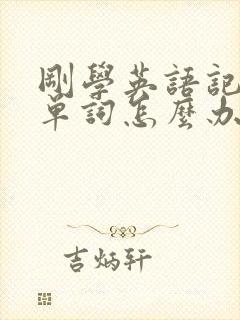 剛學英語記
單詞怎麼办
吉炳轩